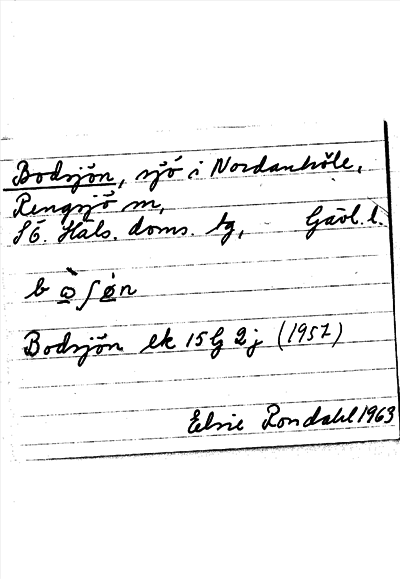 Bodsjön, sjö i Nordanhöle,
Rengsjö m,
SÖ. Häls. doms. lg, Gävl. l.
b ὼ ʃ ø n
Bodsjön ek 15G 2j (1957)
Elsie Rondahl 1963